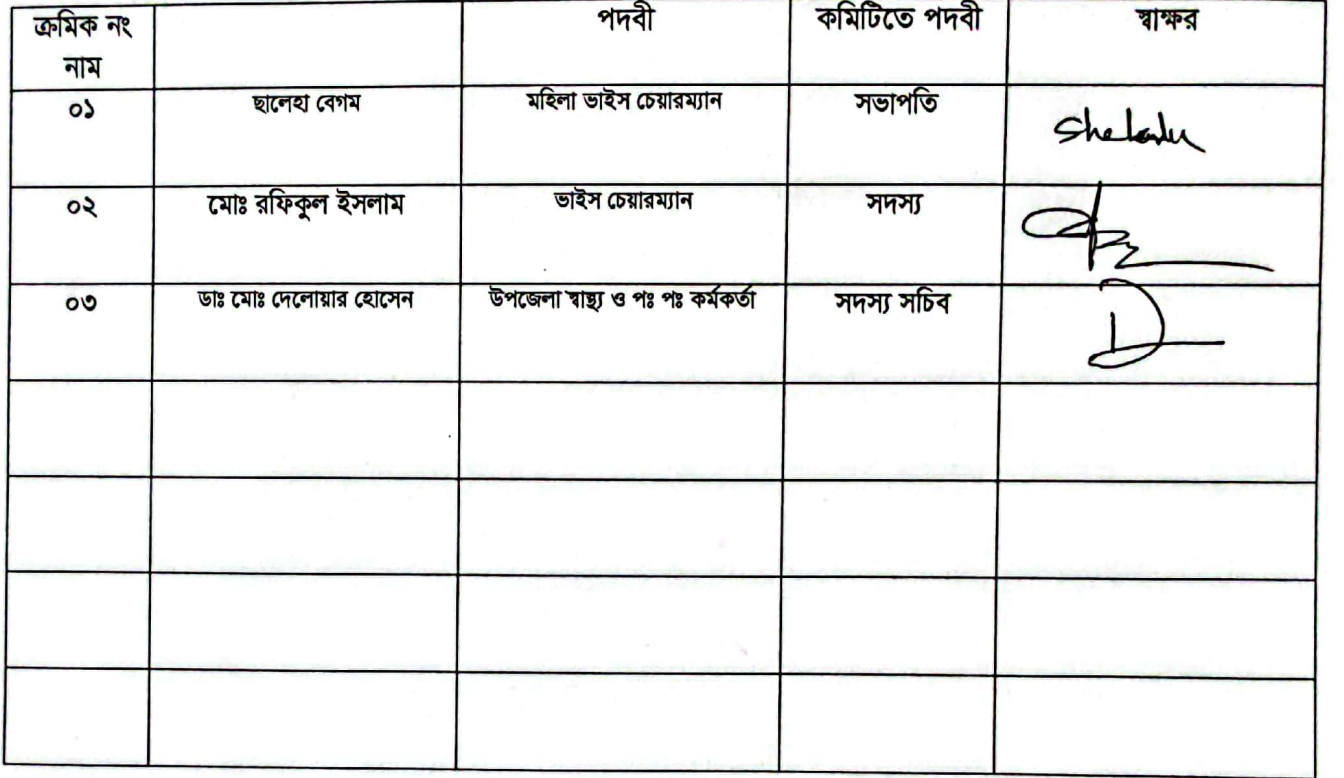 ক্রমিক নং পদবী কমিটিতে পদবী স্বাক্ষর
নাম
০১ ছালেহা বেগম মহিলা ভাইস চেয়ারম্যান সভাপতি
০২ মোঃ রফিকুল ইসলাম ভাইস চেয়ারম্যান সদস্য
০৩ ডাঃ মোঃ দেলোয়ার হোসেন উপজেলা স্বাস্থ্য ও পঃ পঃ কর্মকর্তা সদস্য সচিব